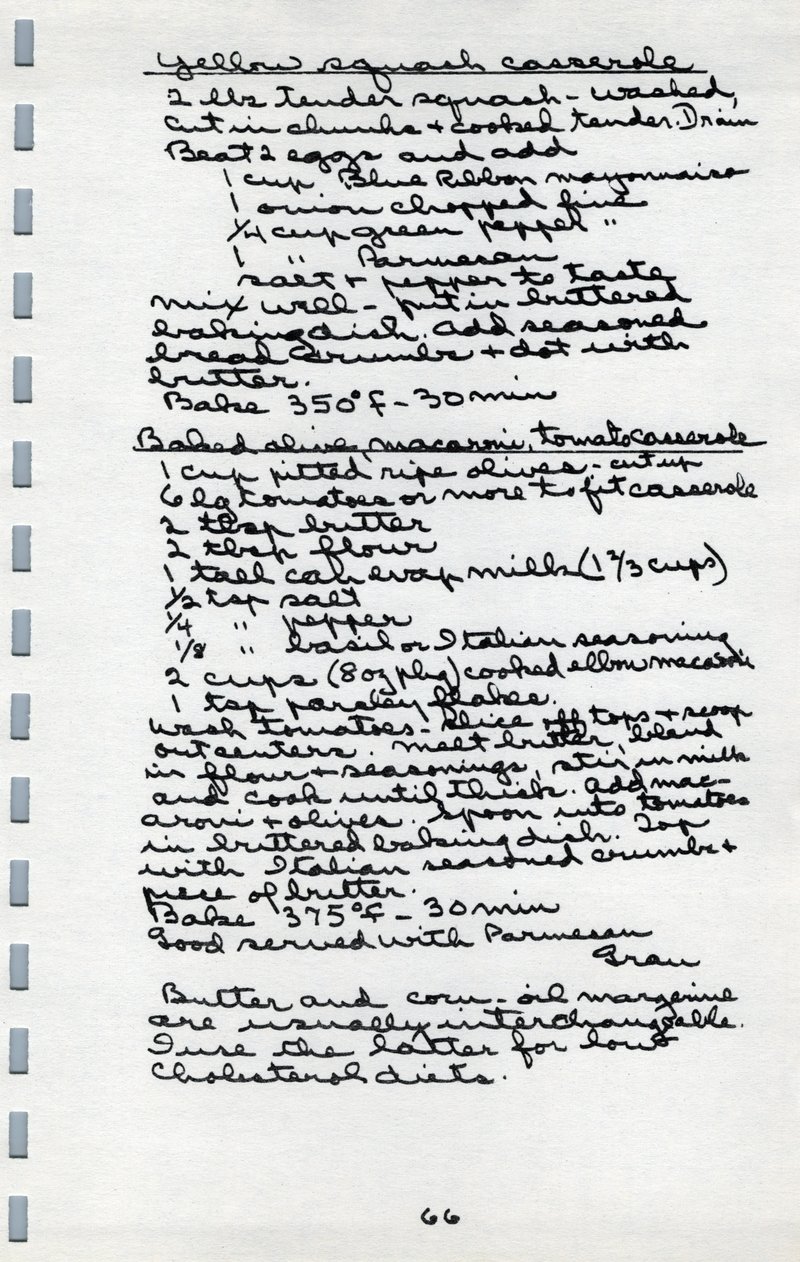 Yellow squash casserole
2 lbs tender squash - washed,
cut in chunks + cooked tender. Drain
Beat 2 eggs and add
1 cup Blue Ribbon mayonnaise
1 onion chopped fine
1/4 cup green pepper "
1 " Parmesan
salt + pepper to taste
Mix well - put in buttered
baking dish. Add seasoned
bread crumbs + dot with
butter.
Bake 350°F - 30 min
Baked olive, macaroni, tomato casserole
1 cup pitted ripe olives - cut up
6 lg tomatoes or more to fit casserole
2 tbsp butter
2 tbsp flour
1 tall can evap milk (1 2/3 cups)
1/2 tsp salt
1/4 " pepper
1/8 " basil or Italian seasoning
2 cups (8 oz pkg) cooked elbow macaroni
1 tsp parsley flakes.
Wash tomatoes - slice off tops + scoop
out centers. Melt butter, blend
in flour + seasonings, stir in milk
and cook until thick. Add mac-
aroni + olives. Spoon into tomatoes
in buttered baking dish. Top
with Italian seasoned crumbs +
piece of butter.
Bake 375°F - 30 min
Good served with Parmesan
Gran
Butter and corn-oil margerine
are usually interchangeable.
I use the latter for low
cholesterol diets.
66